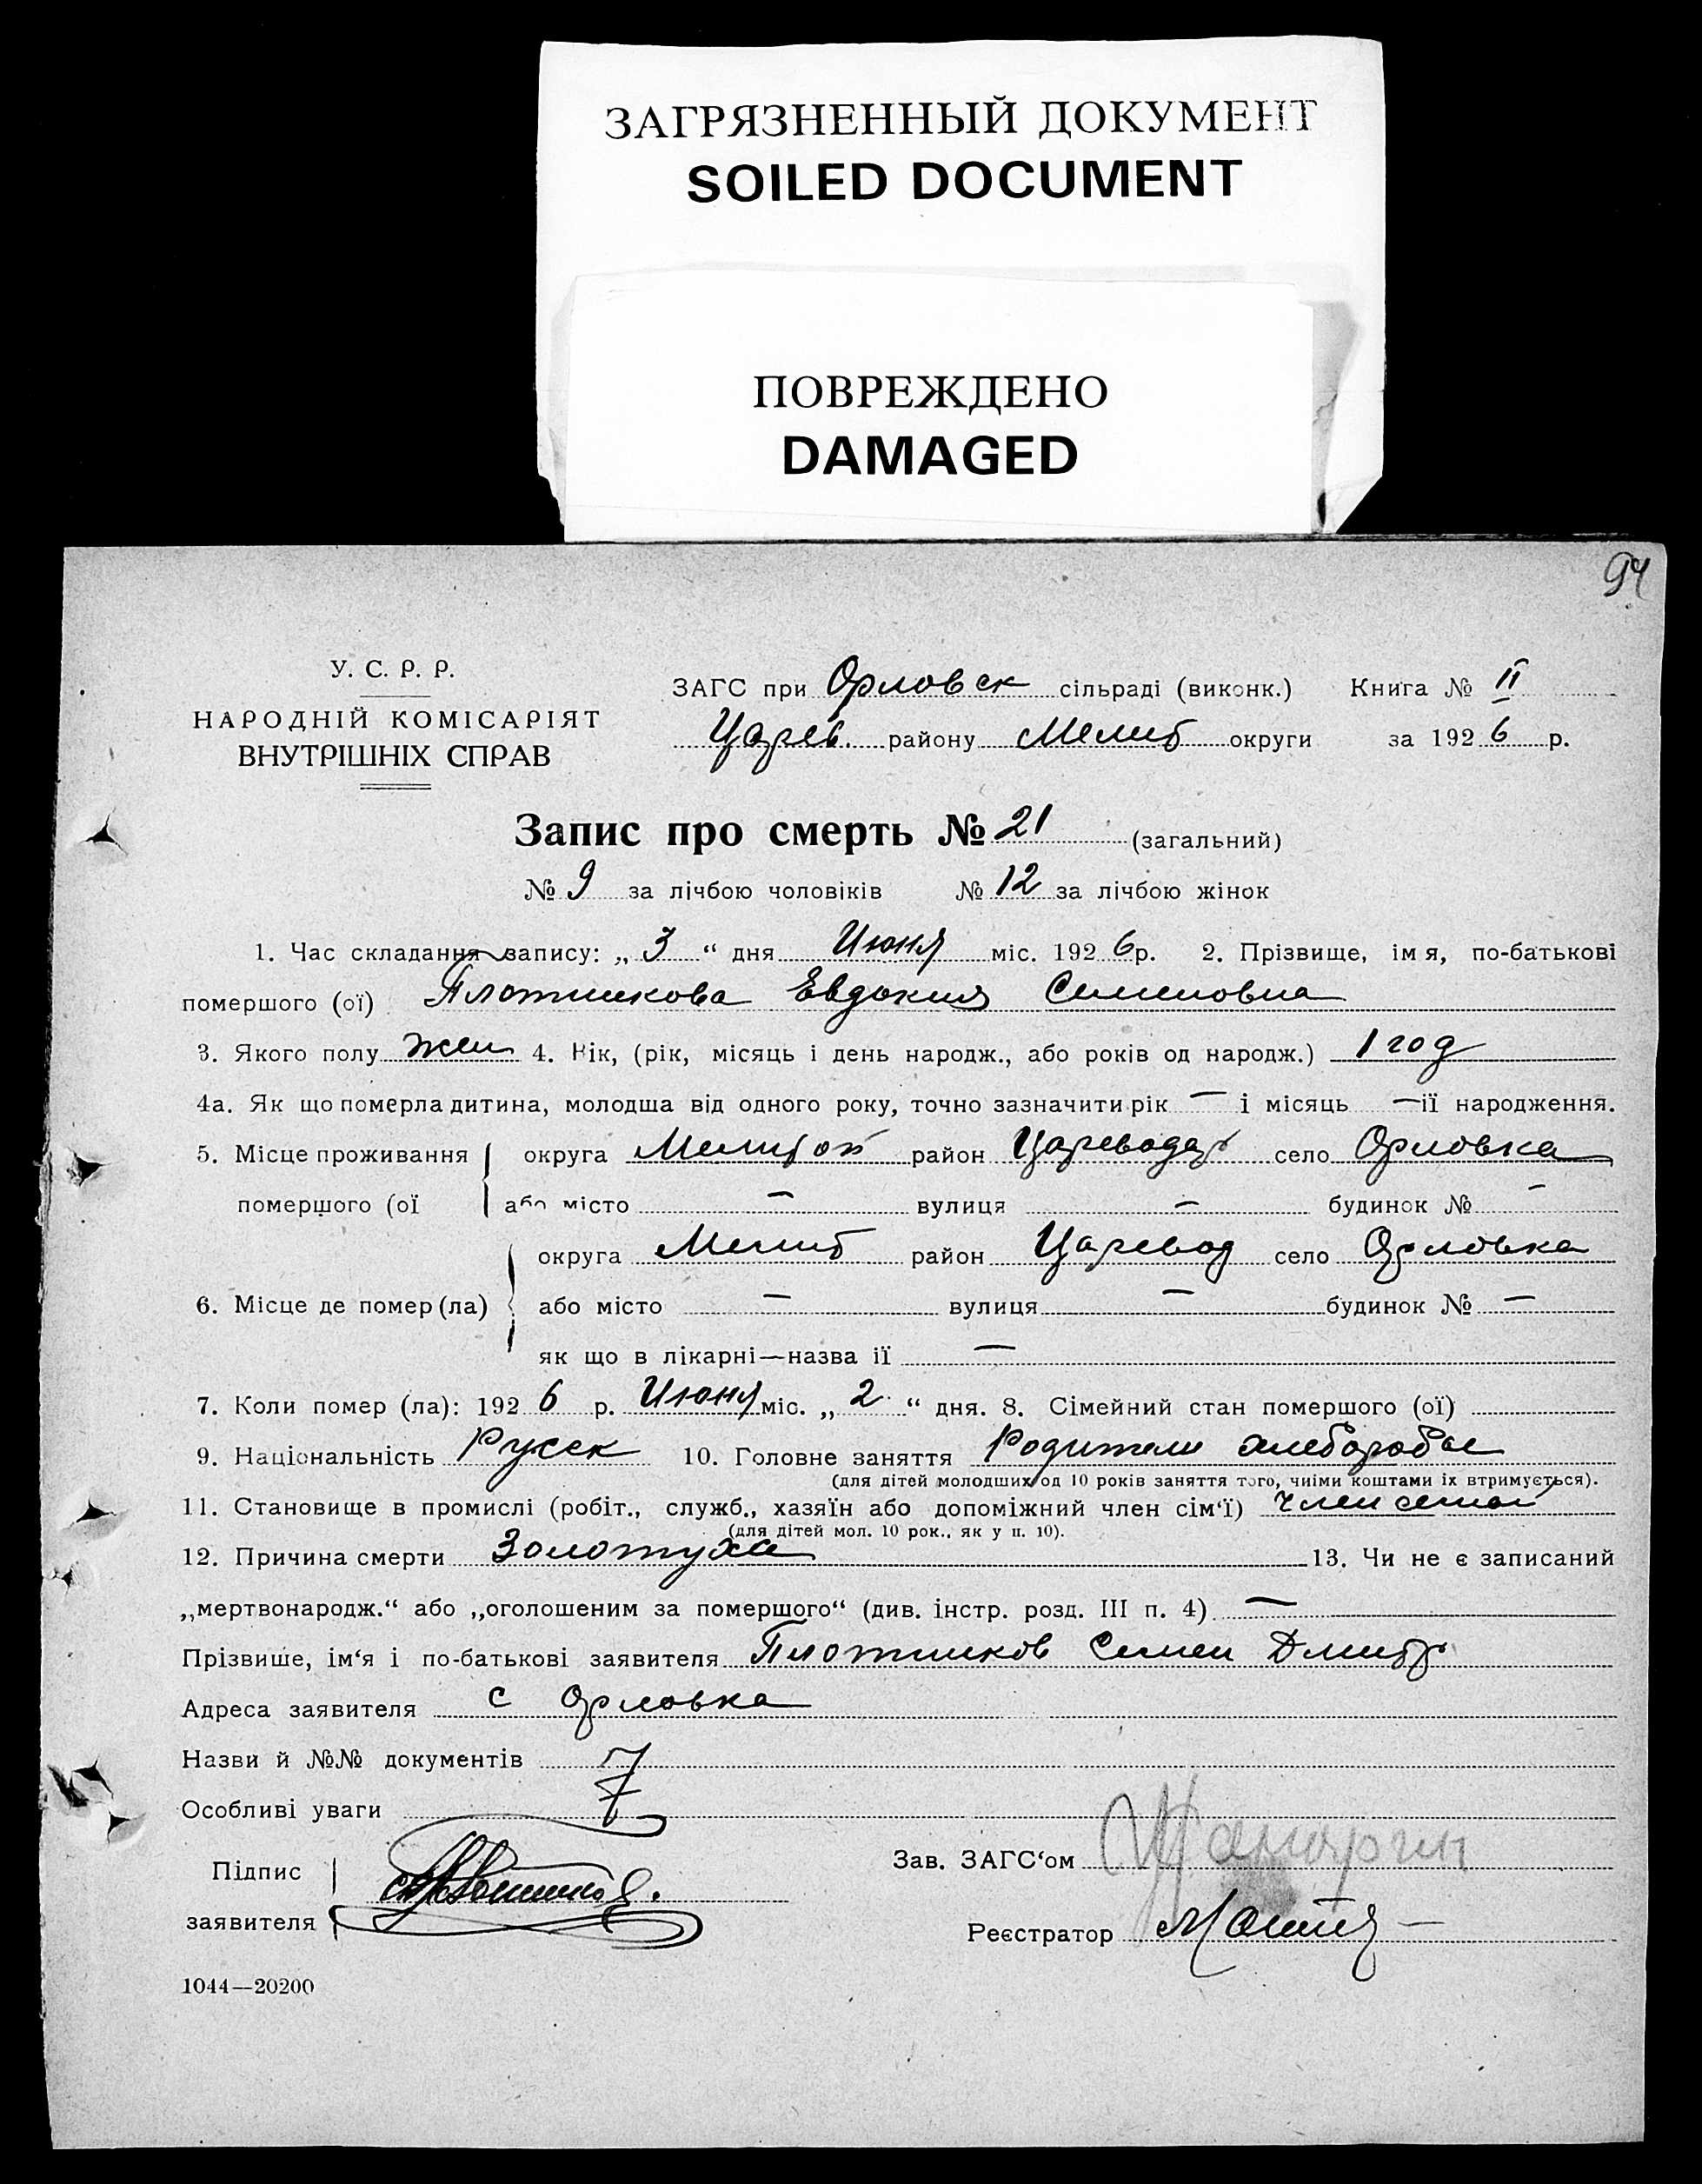 ЗАГРЯЗНЕННЫЙ ДОКУМЕНТ
SOILED DOCUMENT
ПОВРЕЖДЕНО
DAMAGED
94
У. С. Р. Р.
НАРОДНІЙ КОМІСАРІЯТ
ВНУТРІШНІХ СПРАВ
ЗАГС при Орловск сільраді (виконк.) Книга № II
Царев. району Мелит округи за 1926 р.
Запис про смерть № 21 (загальний)
№ 9 за лічбою чоловіків № 12 за лічбою жінок
1. Час складання запису: „3“ дня Июня міс. 1926 р. 2. Прізвище, імя, по-батькові
помершого (ої) Плотникова Евдокия Семеновна
3. Якого полу жен 4. Вік, (рік, місяць і день народж., або років од народж.) 1 год
4а. Як що померла дитина, молодша від одного року, точно зазначити рік — і місяць — її народження.
5. Місце проживання округа Мелитоп район Царевода село Орловка
помершого (ої або місто — вулиця — будинок № —
округа Мелит район Царевод село Орловка
6. Місце де помер (ла) або місто — вулиця — будинок № —
як що в лікарні—назва її —
7. Коли помер (ла): 1926 р. Июня міс. „2“ дня. 8. Сімейний стан помершого (ої)
9. Національність Русск 10. Головне заняття Родители хлеборобы
(для дітей молодших од 10 років заняття того, чиїми коштами їх втримується).
11. Становище в промислі (робіт., служб., хазяїн або допоміжний член сім‘ї) член семьи
(для дітей мол. 10 рок., як у п. 10).
12. Причина смерти Золотуха 13. Чи не є записаний
„мертвонародж.“ або „оголошеним за помершого“ (див. інстр. розд. III п. 4) —
Прізвише, ім‘я і по-батькові заявителя Плотников Семен Дмитр
Адреса заявителя с Орловка
Назви й №№ документів
Особливі уваги
Підпис
заявителя
Зав. ЗАГС‘ом
Реєстратор
1044—20200